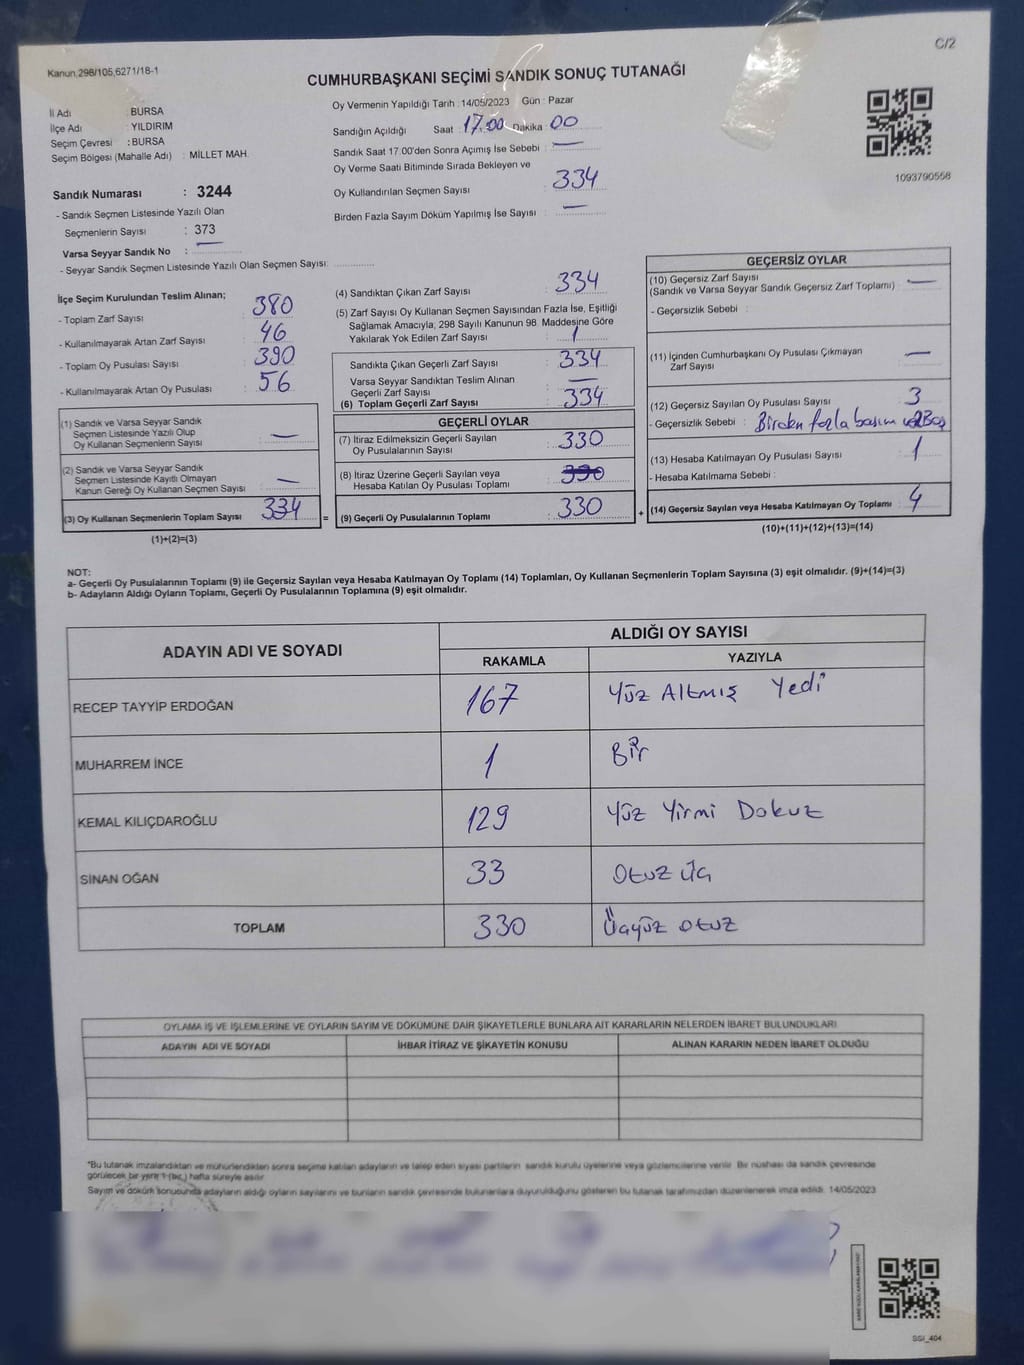 C/2
Kanun,298/105,6271/18-1
CUMHURBAŞKANI SEÇİMİ SANDIK SONUÇ TUTANAĞI
İl Adı : BURSA
İlçe Adı : YILDIRIM
Seçim Çevresi : BURSA
Seçim Bölgesi (Mahalle Adı) : MİLLET MAH.
Oy Vermenin Yapıldığı Tarih : 14/05/2023 Gün : Pazar
Sandığın Açıldığı Saat : 17.00 Dakika 00
Sandık Saat 17.00'den Sonra Açımış İse Sebebi : —
Oy Verme Saati Bitiminde Sırada Bekleyen ve
Oy Kullandırılan Seçmen Sayısı : 334
Birden Fazla Sayım Döküm Yapılmış İse Sayısı : —
1093790558
Sandık Numarası : 3244
- Sandık Seçmen Listesinde Yazılı Olan
Seçmenlerin Sayısı : 373
Varsa Seyyar Sandık No : —
- Seyyar Sandık Seçmen Listesinde Yazılı Olan Seçmen Sayısı:
İlçe Seçim Kurulundan Teslim Alınan;
- Toplam Zarf Sayısı : 380
- Kullanılmayarak Artan Zarf Sayısı : 46
- Toplam Oy Pusulası Sayısı : 390
- Kullanılmayarak Artan Oy Pusulası : 56
(1) Sandık ve Varsa Seyyar Sandık
Seçmen Listesinde Yazılı Olup
Oy Kullanan Seçmenlerin Sayısı : —
(2) Sandık ve Varsa Seyyar Sandık
Seçmen Listesinde Kayıtlı Olmayan
Kanun Gereği Oy Kullanan Seçmen Sayısı : —
(3) Oy Kullanan Seçmenlerin Toplam Sayısı : 334
(1)+(2)=(3)
(4) Sandıktan Çıkan Zarf Sayısı : 334
(5) Zarf Sayısı Oy Kullanan Seçmen Sayısından Fazla İse, Eşitliği
Sağlamak Amacıyla; 298 Sayılı Kanunun 98. Maddesine Göre
Yakılarak Yok Edilen Zarf Sayısı :
Sandıkta Çıkan Geçerli Zarf Sayısı : 334
Varsa Seyyar Sandıktan Teslim Alınan
Geçerli Zarf Sayısı : —
(6) Toplam Geçerli Zarf Sayısı : 334
GEÇERLİ OYLAR
(7) İtiraz Edilmeksizin Geçerli Sayılan
Oy Pusulalarının Sayısı : 330
(8) İtiraz Üzerine Geçerli Sayılan veya
Hesaba Katılan Oy Pusulası Toplamı :
= (9) Geçerli Oy Pusulalarının Toplamı : 330
GEÇERSİZ OYLAR
(10) Geçersiz Zarf Sayısı
(Sandık ve Varsa Seyyar Sandık Geçersiz Zarf Toplamı) : —
- Geçersizlik Sebebi :
(11) İçinden Cumhurbaşkanı Oy Pusulası Çıkmayan
Zarf Sayısı : —
(12) Geçersiz Sayılan Oy Pusulası Sayısı : 3
- Geçersizlik Sebebi : Birden fazla basım
(13) Hesaba Katılmayan Oy Pusulası Sayısı : 1
- Hesaba Katılmama Sebebi :
+ (14) Geçersiz Sayılan veya Hesaba Katılmayan Oy Toplamı : 4
(10)+(11)+(12)+(13)=(14)
NOT:
a- Geçerli Oy Pusulalarının Toplamı (9) ile Geçersiz Sayılan veya Hesaba Katılmayan Oy Toplamı (14) Toplamları, Oy Kullanan Seçmenlerin Toplam Sayısına (3) eşit olmalıdır. (9)+(14)=(3)
b- Adayların Aldığı Oyların Toplamı, Geçerli Oy Pusulalarının Toplamına (9) eşit olmalıdır.
ADAYIN ADI VE SOYADI
ALDIĞI OY SAYISI
RAKAMLA YAZIYLA
RECEP TAYYİP ERDOĞAN 167 Yüz Altmış Yedi
MUHARREM İNCE 1 Bir
KEMAL KILIÇDAROĞLU 129 Yüz Yirmi Dokuz
SİNAN OĞAN 33 Otuz Üç
TOPLAM 330 Üçyüz otuz
OYLAMA İŞ VE İŞLEMLERİNE VE OYLARIN SAYIM VE DÖKÜMÜNE DAİR ŞİKAYETLERLE BUNLARA AİT KARARLARIN NELERDEN İBARET BULUNDUKLARI
ADAYIN ADI VE SOYADI İHBAR İTİRAZ VE ŞİKAYETİN KONUSU ALINAN KARARIN NEDEN İBARET OLDUĞU
*Bu tutanak imzalandıktan ve mühürlendikten sonra seçime katılan adayların ve talep eden siyasi partilerin sandık kurulu üyelerine veya gözlemcilerine verilir. Bir nüshası da sandık çevresinde
görülecek bir yere 1 (bir) hafta süreyle asılır
Sayım ve döküm sonucunda adayların aldığı oyların sayılarını ve bunların sandık çevresinde bulunanlara duyurulduğunu gösteren bu tutanak tarafımızdan düzenlenerek imza edildi. 14/05/2023
SSI_404